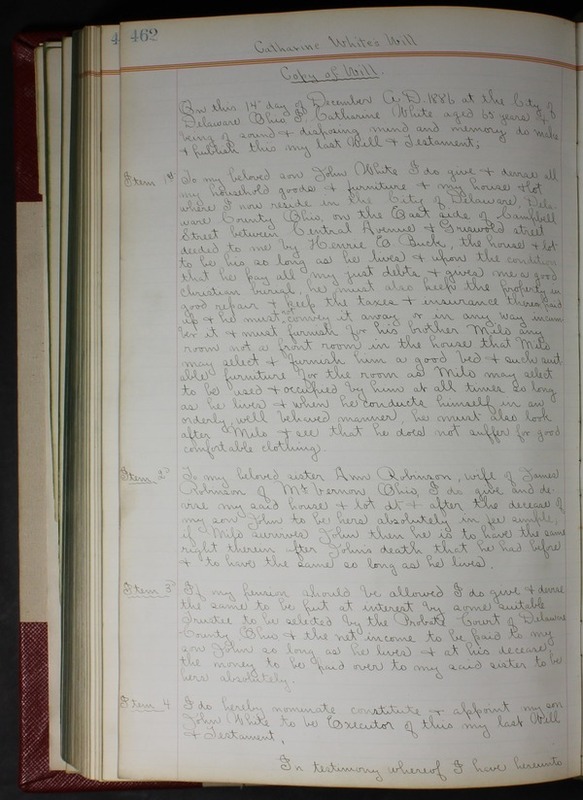 4 462
Catharine White's Will
Copy of Will.
On this 14" day of December A.D. 1886 at the City of
Delaware Ohio I, Catharine White aged 65 years &
being of sound & disposing mind and memory do make
& publish this my last Will & Testament,
Item 1st To my beloved son John White I do give & devise all
my household goods & furniture & my house & lot
where I now reside in the City of Delaware, Dela-
ware County Ohio, on the East side of Campbell
Street between Central Avenue & Griswold street
deeded to me by Henrie Buck, the house & lot
to be his so long as he lives & upon the condition
that he pay all my just debts & gives me a good
christian burial, he must also keep the property in
good repair & keep the taxes & insurance thereon paid
up & he must not convey it away or in any way incum
ber it & must furnish for his brother Milo any
room not a front room in the house that Milo
may select & furnish him a good bed & such suit
able furniture for the room as Milo may select
to be used & occupied by him at all times so long
as he lives & when he conducts himself in an
orderly well behaved manner, he must also look
after Milo & see that he does not suffer for good
comfortable clothing.
Item 2d To my beloved sister Ann Robinson, wife of James
Robinson of Mt Vernon Ohio, I do give and de-
vise my said house & lot at & after the decease of
my son John to be hers absolutely in fee simple,
if Milo survives John then he is to have the same
right therein after John's death that he had before
& to have the same so long as he lives.
Item 3d If my pension should be allowed I do give & devise
the same to be put at interest by some suitable
trustee to be selected by the Probate Court of Delaware
County Ohio & the net income to be paid to my
son John so long as he lives & at his decease
the money to be paid over to my said sister to be
hers absolutely.
Item 4 I do hereby nominate constitute & appoint my son
John White to be Executor of this my last Will
& Testament,
In testimony whereof I have hereunto